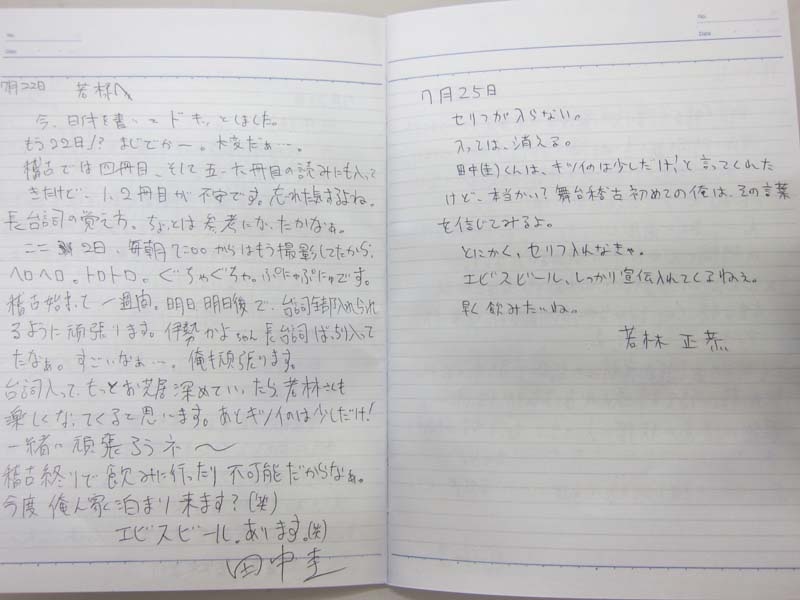 No.
Date
7月22日 若様へ
今、日付を書いてドキッとしました。
もう22日!? まじでかー。大変だぁ…。
稽古では四冊目、そして五、六冊目の読みにも入って
きたけど、1、2冊目が不安です。忘れちゃするよね。
長台詞の覚え方。ちょっとは参考になったかなぁ。
ここ2日、毎朝7:00からはもう撮影してたから、
ヘロヘロ。トロトロ。ぐちゃぐちゃ。ぷにゃぷにゃです。
稽古始まって一週間。明日明日後で、台詞全部入れられ
るように頑張ります。伊勢かよちゃん長台詞ばっちり入って
たなぁ。すごいなぁ…。俺も頑張ります。
台詞入って、もっとお芝居深めていったら、若林さんも
楽しくなってくると思います。あとキツイのは少しだけ!
一緒に頑張ろうネ〜
稽古終りで飲みに行ったり不可能だからなぁ。
今度俺ん家泊まり来ます?(笑)
エビスビール。あります。(笑)
田中圭
No.
Date
7月25日
セリフが入らない。
入っては、消える。
田中(圭)くんは、キツイのは少しだけ!と言ってくれた
けど、本当かい?舞台稽古初めての俺は、その言葉
を信じてみるよ。
とにかく、セリフ入れなきゃ。
エビスビール、しっかり宣伝入れてくるねぇ。
早く飲みたいね。
若林 正恭